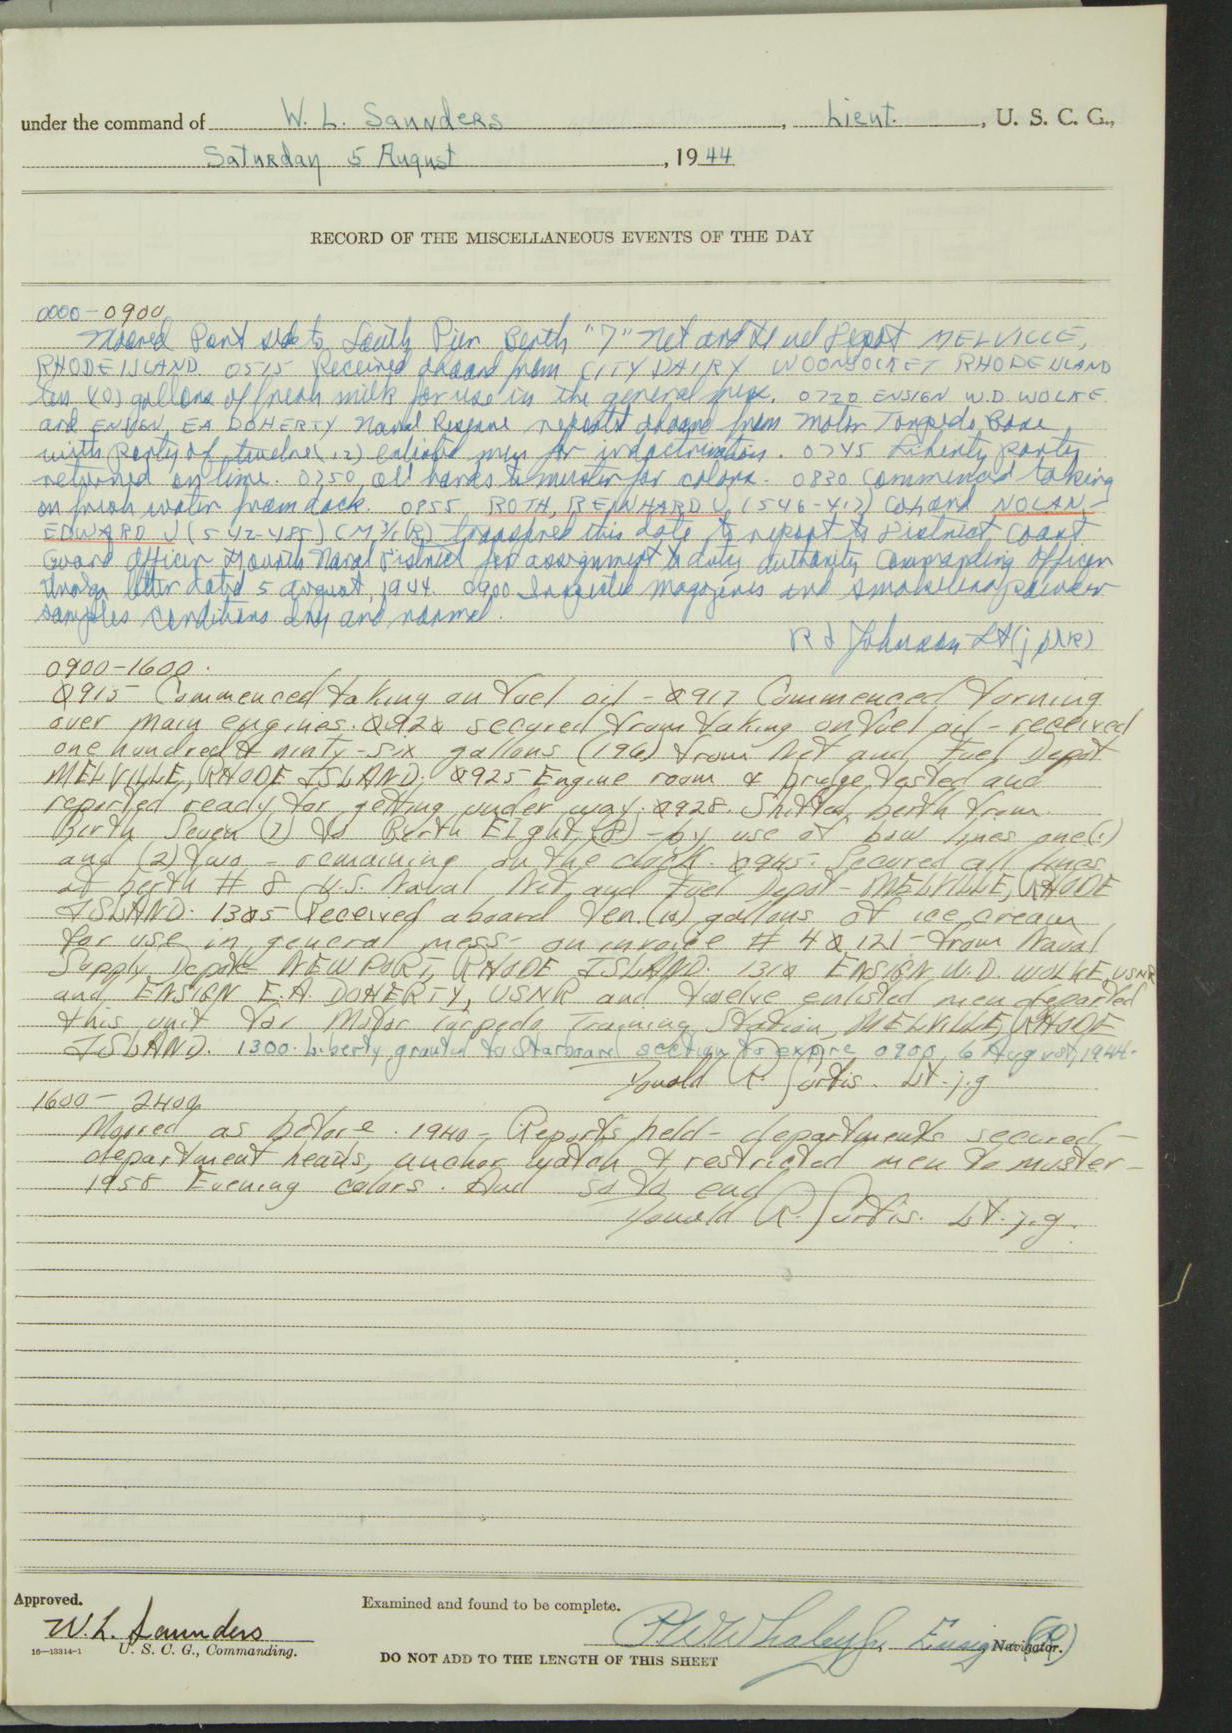 under the command of W. L. Saunders, Lieut., U. S. C. G.,
Saturday 5 August, 1944
RECORD OF THE MISCELLANEOUS EVENTS OF THE DAY
0000-0900
Moored Port side to South Pier Berth "7" Net and Fuel Depot MELVILLE,
RHODE ISLAND. 0515 Received aboard from CITY DAIRY WOONSOCKET RHODE ISLAND
ten (10) gallons of fresh milk for use in the general mess. 0720 ENSIGN W.D. WOLKE
and ENSIGN EA DOHERTY Naval Reserve reports aboard from Motor Torpedo Base
with party of twelve (12) enlisted men for indoctrination. 0745 Liberty party
returned on time. 0750 all hands to muster for colors. 0830 Commenced taking
on fresh water from dock. 0855 ROTH, REINHARD J, (546-412) Cox and NOLAN
EDWARD J (542-485) CM3/c(R) transfered this date to report to District Coast
Guard Officer Fourth Naval District for assignment to duty authority Commanding Officer
letter dated 5 August, 1944. 0900 Inspected Magazines and smokeless powder
samples conditions dry and normal.
R J Johnson Lt(jg)(R)
0900-1600.
0915 Commenced taking on fuel oil - 0917 Commenced turning
over main engines. 0920 secured from taking on fuel oil - received
one hundred & ninty-six gallons (196) from Net and Fuel Depot
MELVILLE, RHODE ISLAND. 0925 Engine room & bridge tested and
reported ready for getting under way. 0928. Shifted berth from
Birth Seven (7) to Berth Eight (8) - by use of bow lines one (1)
and (2) two - remaining on the dock. 0945. Secured all lines
at berth # 8 U.S. Naval Net and Fuel Depot - MELVILLE, RHODE
ISLAND. 1305 Received aboard Ten (10) gallons of ice cream
for use in general mess - on invoice # 40121 - from Naval
Supply Depot - NEWPORT, RHODE ISLAND. 1310 ENSIGN W.D. WOLKE, USNR
and ENSIGN E.A. DOHERTY, USNR and twelve enlisted men departed
this unit for Motor Torpedo Training Station, MELVILLE, RHODE
ISLAND. 1300. Liberty granted to Starboard section to expire 0900, 6 August, 1944.
Donald R. Curtis. Lt. j.g
1600 - 2400
Moored as before. 1940 - Reports held - departments secured -
department heads, anchor watch & restricted men to muster -
1958 Evening colors. And so to end
Donald R. Curtis. Lt. j.g.
Approved.
W.L. Saunders
16-13314-1 U. S. C. G., Commanding.
Examined and found to be complete.
Whaley Jr. Ensign (R) Navigator.
DO NOT ADD TO THE LENGTH OF THIS SHEET